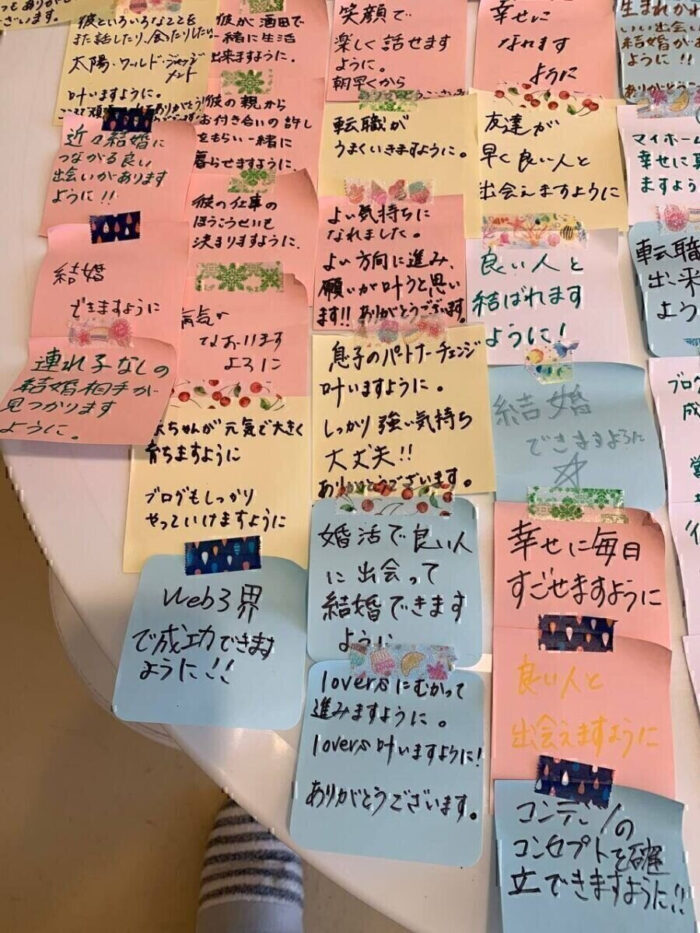 ざいます。
彼といろいろなことを
また話したり、食べたりしたい
太陽・ワールド・ジャッジ
メント
叶いますように。
近々結婚に
つながる良い
出会いがあります
ように!!
結婚
できますように
連れ子なしの
結婚相手が
見つかります
ように。
彼が、酒田で
一緒に生活
出来ますように
彼の親から
お付き合いの許し
をもらい一緒に
暮らせますように。
彼の仕事の
ほうこうせいも
決まりますように、
病気が
なおります
ように
ちゃんが元気で大きく
育ちますように
ブログもしっかり
やっていけますように
Web3界
で成功できます
ように!!
笑顔で
楽しく話せます
ように。
朝早くから
転職が
うまくいきますように。
よい気持ちに
なれました。
よい方向に進み、
願いが叶うと思い
ます!!ありがとうございます。
息子のパートナーチェンジ
叶いますように。
しっかり強い気持ち
大丈夫!!
ありがとうございます。
婚活で良い人
に出会って
結婚できます
ように
loversにむかって
進みますように。
lovers叶いますように!
ありがとうございます。
幸せに
なれます
ように
友達が
早く良い人と
出会えますように
良い人と
結ばれます
ように!
結婚
できますように
☆
幸せに毎日
すごせますように
良い人と
出会えますように
コンテンツの
コンセプトを確
立できますように!!
生まれかわ
いい出会い
結婚が
ありがとう
マイホーム
幸せに
ますよう
転職
出来
よう
ブログ
成